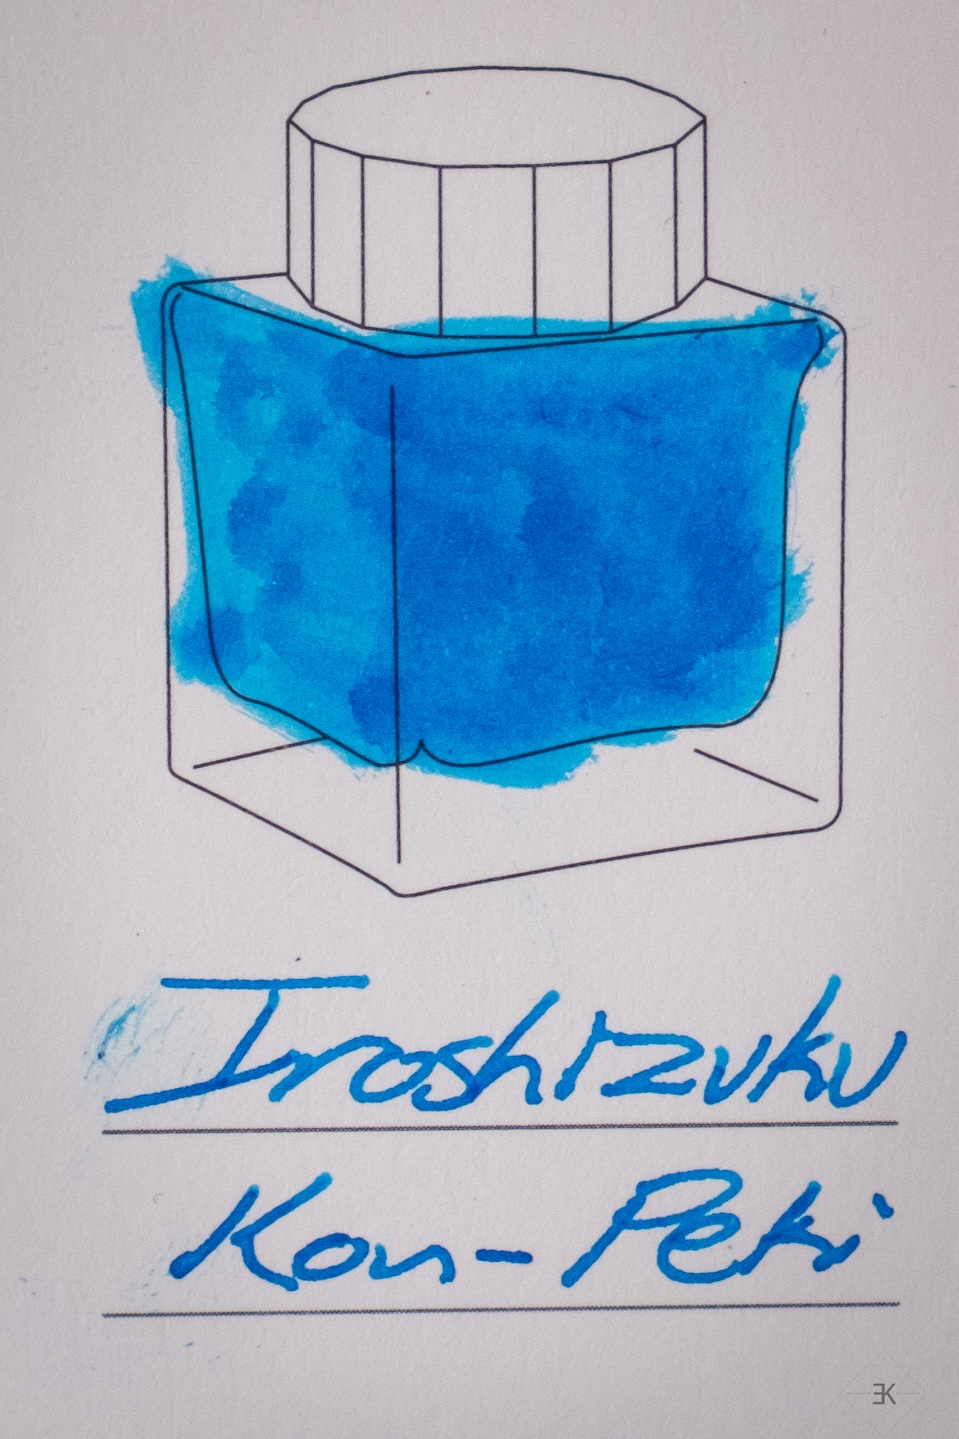 Iroshizuku
Kon-Peki
EK